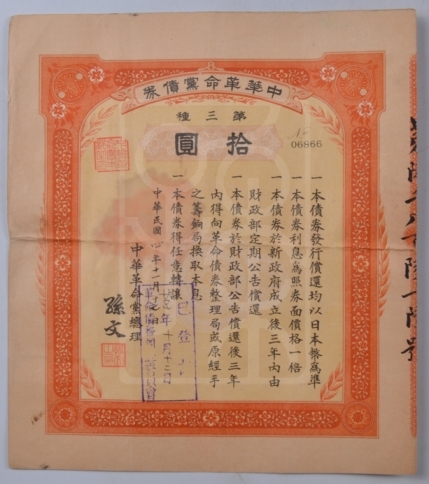 中華革命黨債券
第三種
拾圓
06866
一本債券發行償還均以日本幣為準
一本債券利息為照券面價格一倍
一本債券於新政府成立後三年內由
財政部定期公告償還
一本債券於財政部公告償還後三年
內得向革命債券整理局或原經手
之籌餉局換取本息
一本債券得任意轉讓
中華民國四年十一月日
中華革命黨總理
孫文
年十月十三日